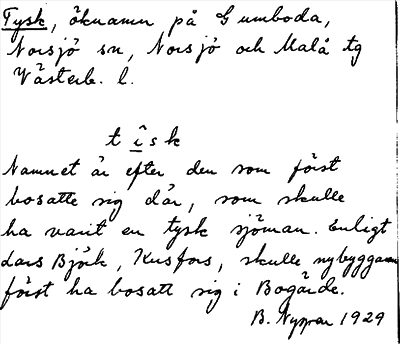 Tysk, öknamn på Gumboda,
Norsjö sn, Norsjö och Malå tg
Västerb. l.
t î s k
Namnet är efter den som först
bosatte sig där, som skulle
ha varit en tysk sjöman. Enligt
Lars Björk, Kusfors, skulle nybyggaren
först ha bosatt sig i Bogärde.
B. Nyman 1929